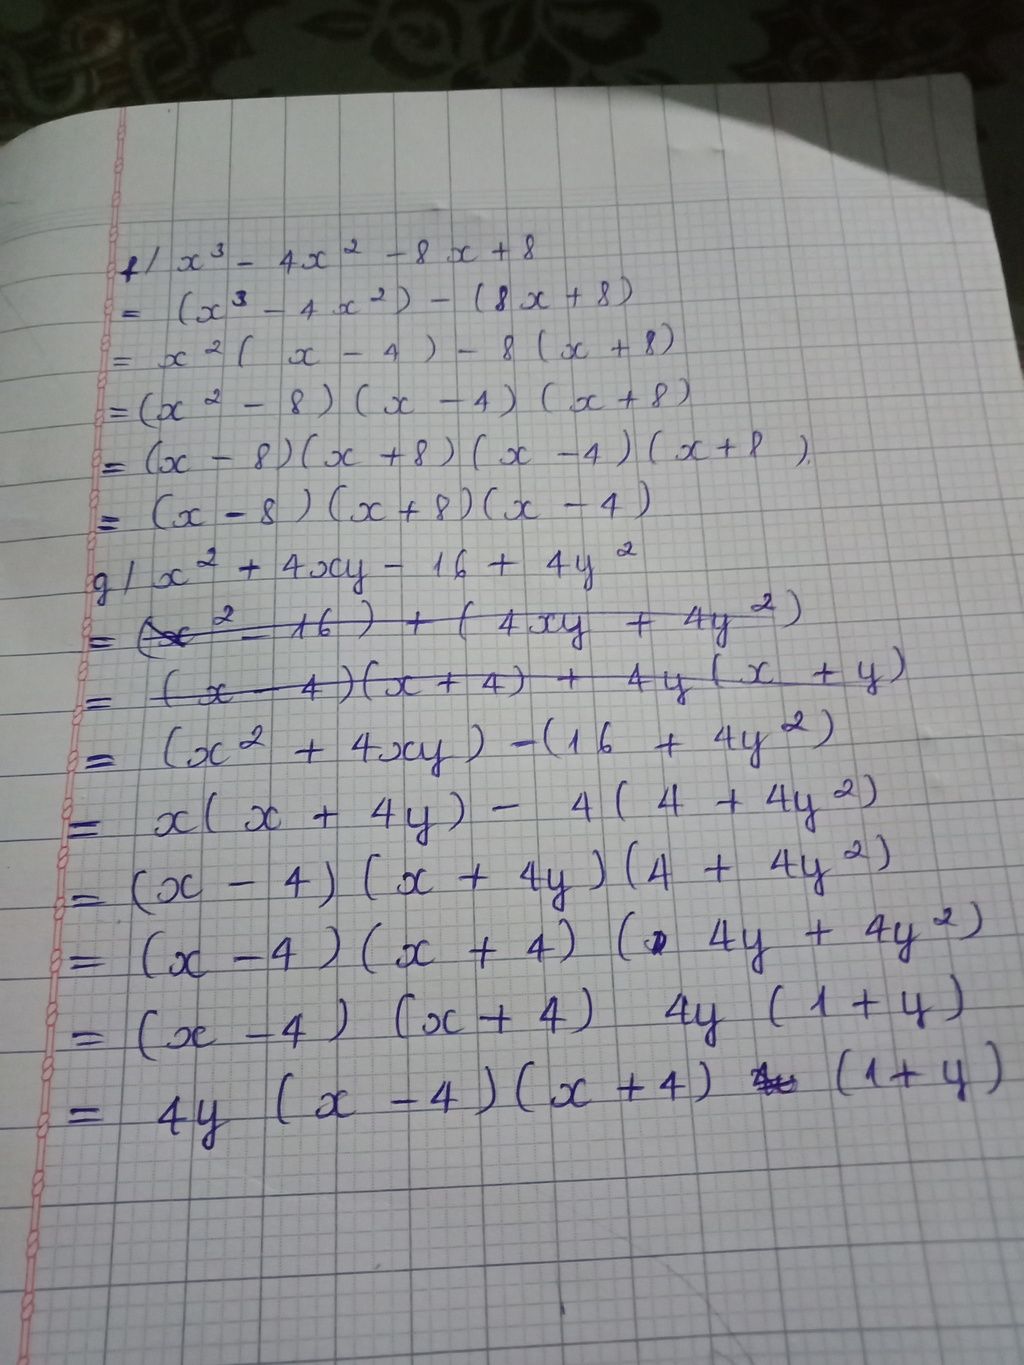 f/ x³ - 4x² - 8x + 8
= (x³ - 4x²) - (8x + 8)
= x²( x - 4 ) - 8 (x + 8)
= (x² - 8) (x - 4) (x + 8)
= (x - 8)(x + 8)(x - 4)(x + 8 ).
= (x - 8)(x + 8)(x - 4)
g/ x² + 4xy - 16 + 4y²
= (x² - 16) + (4xy + 4y²)
= (x - 4)(x + 4) + 4y(x + y)
= (x² + 4xy) - (16 + 4y²)
= x(x + 4y) - 4(4 + 4y²)
= (x - 4)(x + 4y)(4 + 4y²)
= (x - 4)(x + 4) ( 4y + 4y²)
= (x - 4) (x + 4) 4y (1 + y)
= 4y (x - 4)(x + 4) (1 + y)